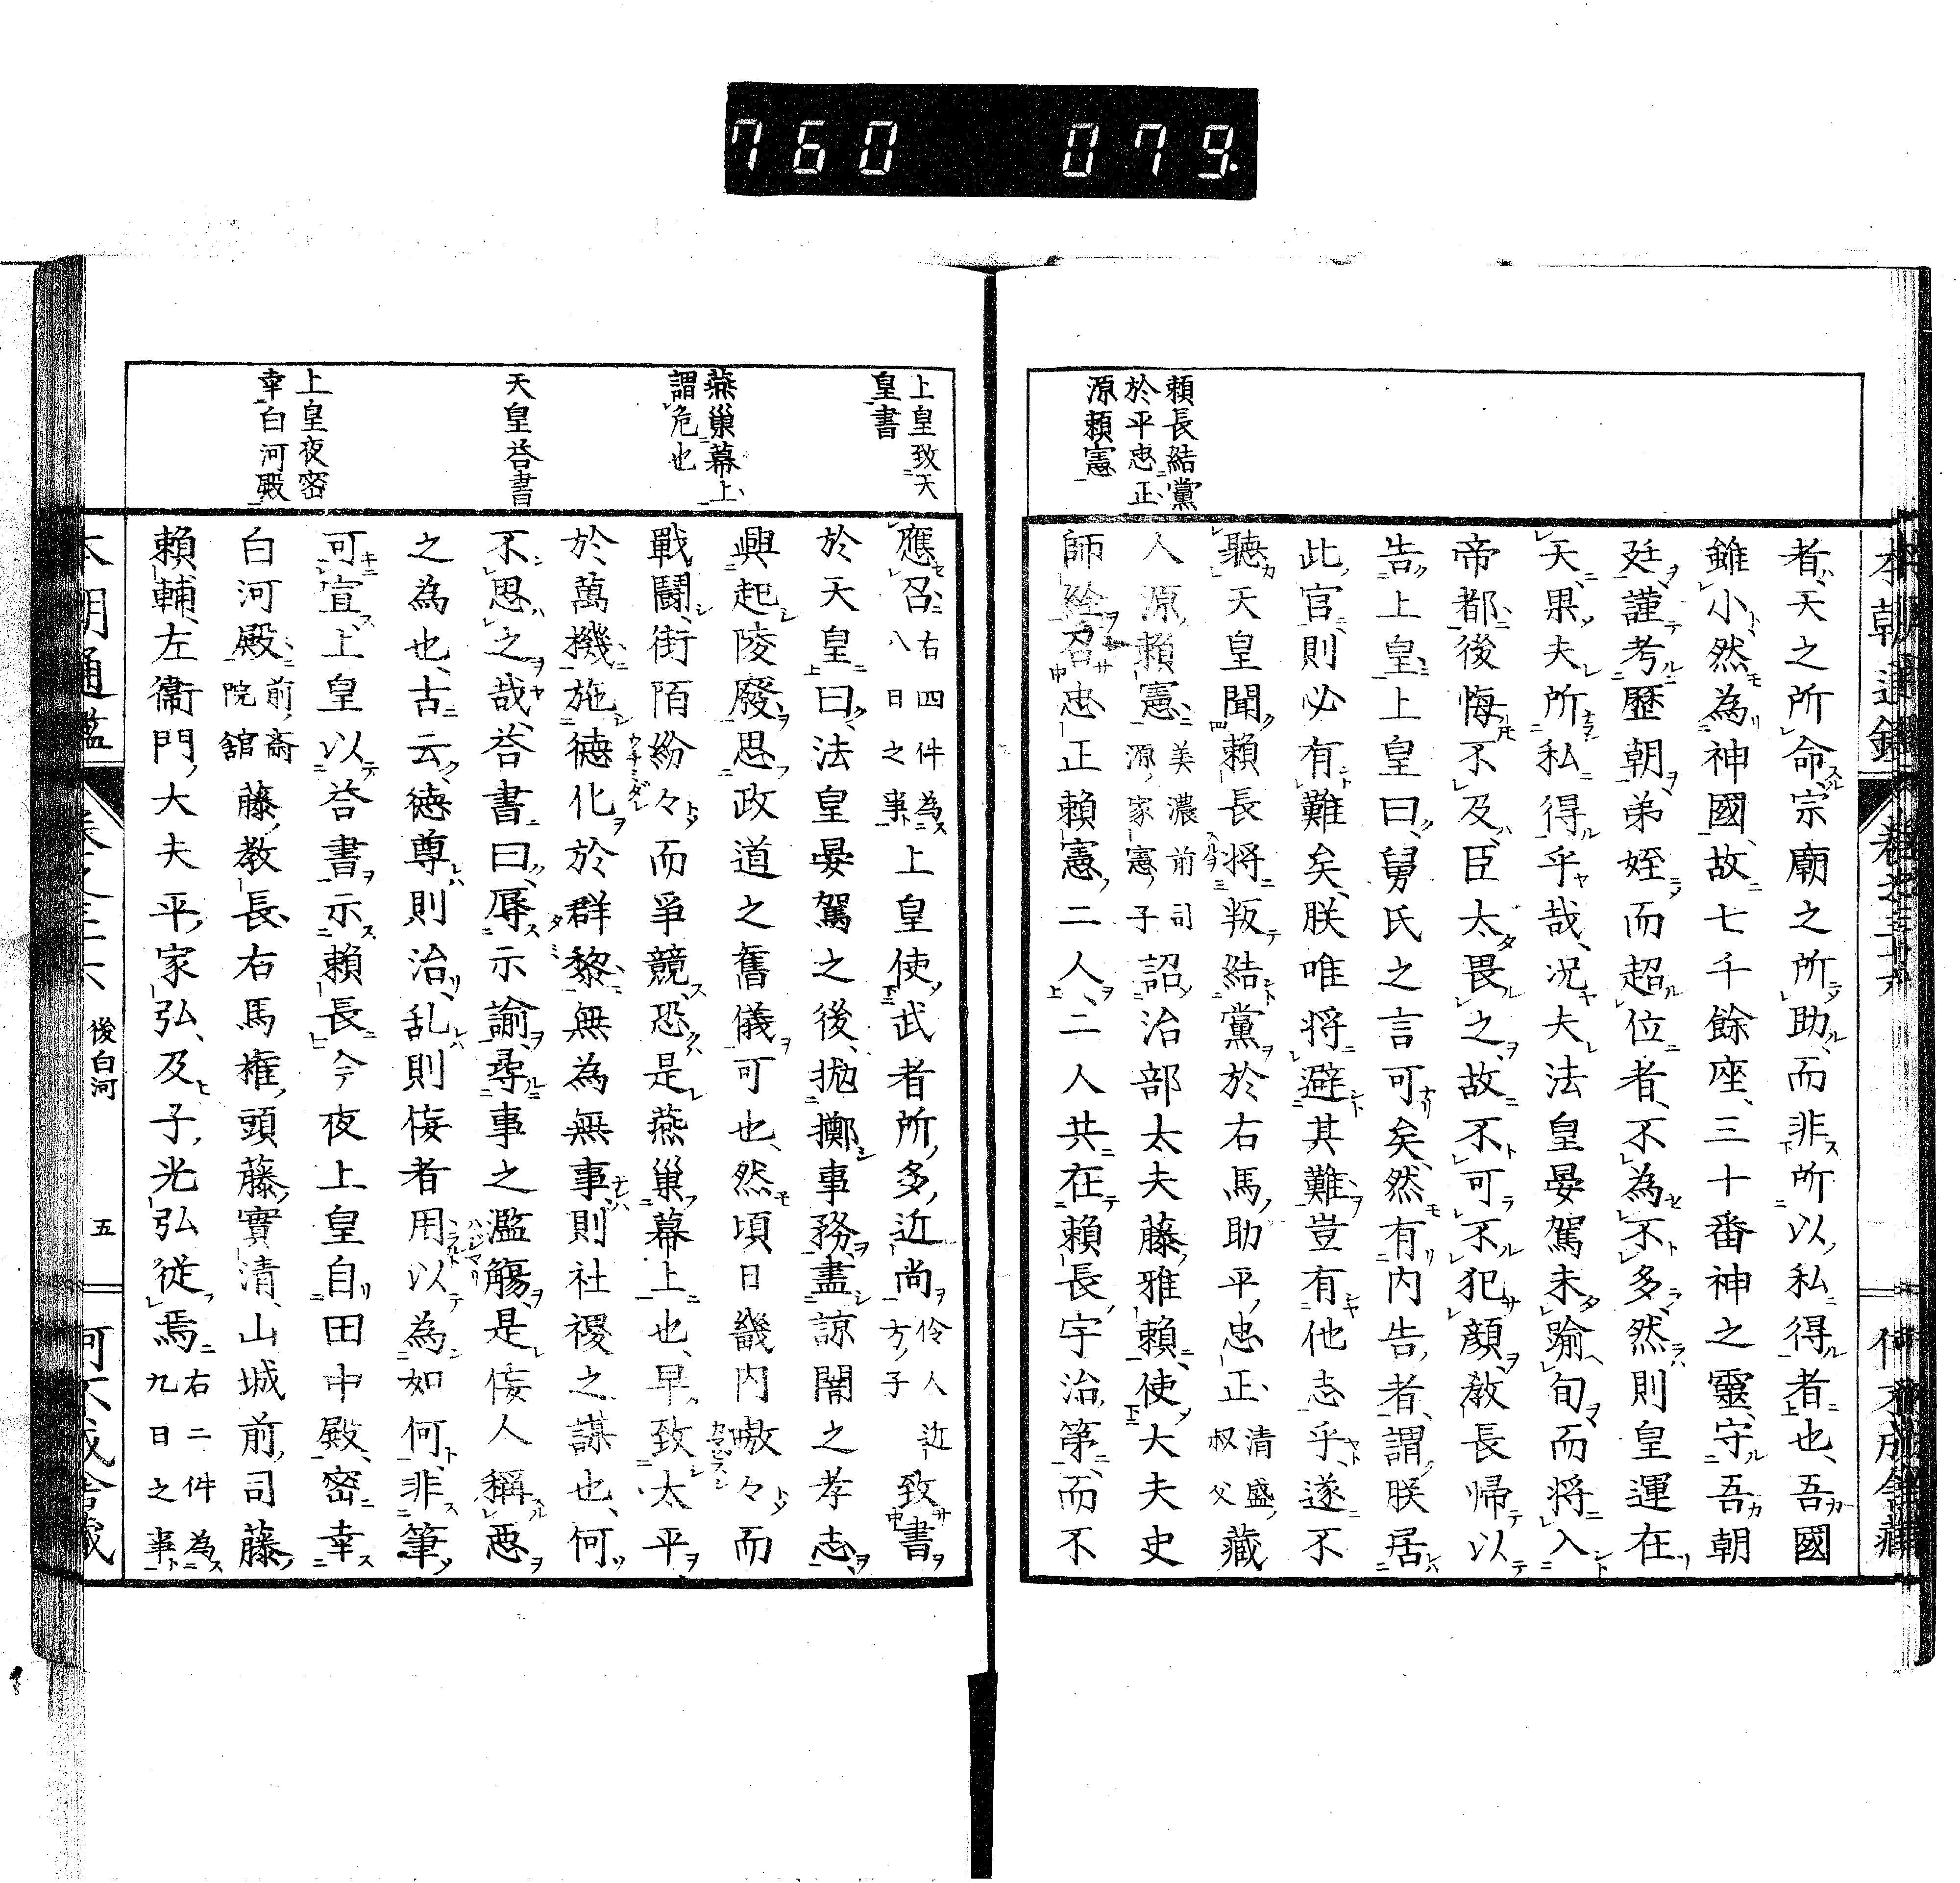 760 079.
本朝通鑑 卷之三十六 何不成舍藏
者天之所命宗廟之所助而非所以私得者也、吾國
雖小然為神國、故七千餘座、三十番神之靈、守吾朝
廷、謹考歷朝、弟姪而超位者、不為不多、然則皇運在
天、果夫所私得乎哉、况夫法皇晏駕未踰旬而將入
帝都、後悔不及、臣太畏之、故不可不犯顏、敎長歸以
告上皇、上皇曰、舅氏之言可矣、然有內告者、謂朕居
此官、則必有難矣、朕唯將避其難、豈有他志乎、遂不
聽、天皇聞賴長將叛結黨於右馬助平忠正、清盛叔父藏
人源賴憲、美濃前司源家憲子詔治部太夫藤雅賴、使大夫史
師經召忠正賴憲二人、二人共在賴長宇治第、而不
賴長結黨
於平忠正
源賴憲
應召、右四件為八日之事上皇使武者所多近尚、伶人近方子致書
於天皇曰、法皇晏駕之後、拋擲事務、盡諒闇之孝志、
興起陵廢、思政道之舊儀可也、然頃日畿內嗷々而
戰鬪、街陌紛々、而爭競、恐是燕巢幕上也、早致太平、
於萬機施德化於群黎、無為無事、則社稷之謀也、何
不思之哉、荅書曰、辱示諭、尋事之濫觴、是侫人稱惡
之為也、古云、德尊則治、乱則侫者用以為如何、非筆
可宣、上皇以荅書示賴長、今夜上皇自田中殿、密幸
白河殿、前齋院舘藤教長、右馬權頭藤實清、山城前司藤
賴輔、左衞門大夫平家弘、及子光弘從焉、右二件為九日之事
上皇致天
皇書
燕巢幕上
謂危也
天皇荅書
上皇夜密
幸白河殿
本朝通鑑 卷之三十六 後白河 五 何不成舍藏